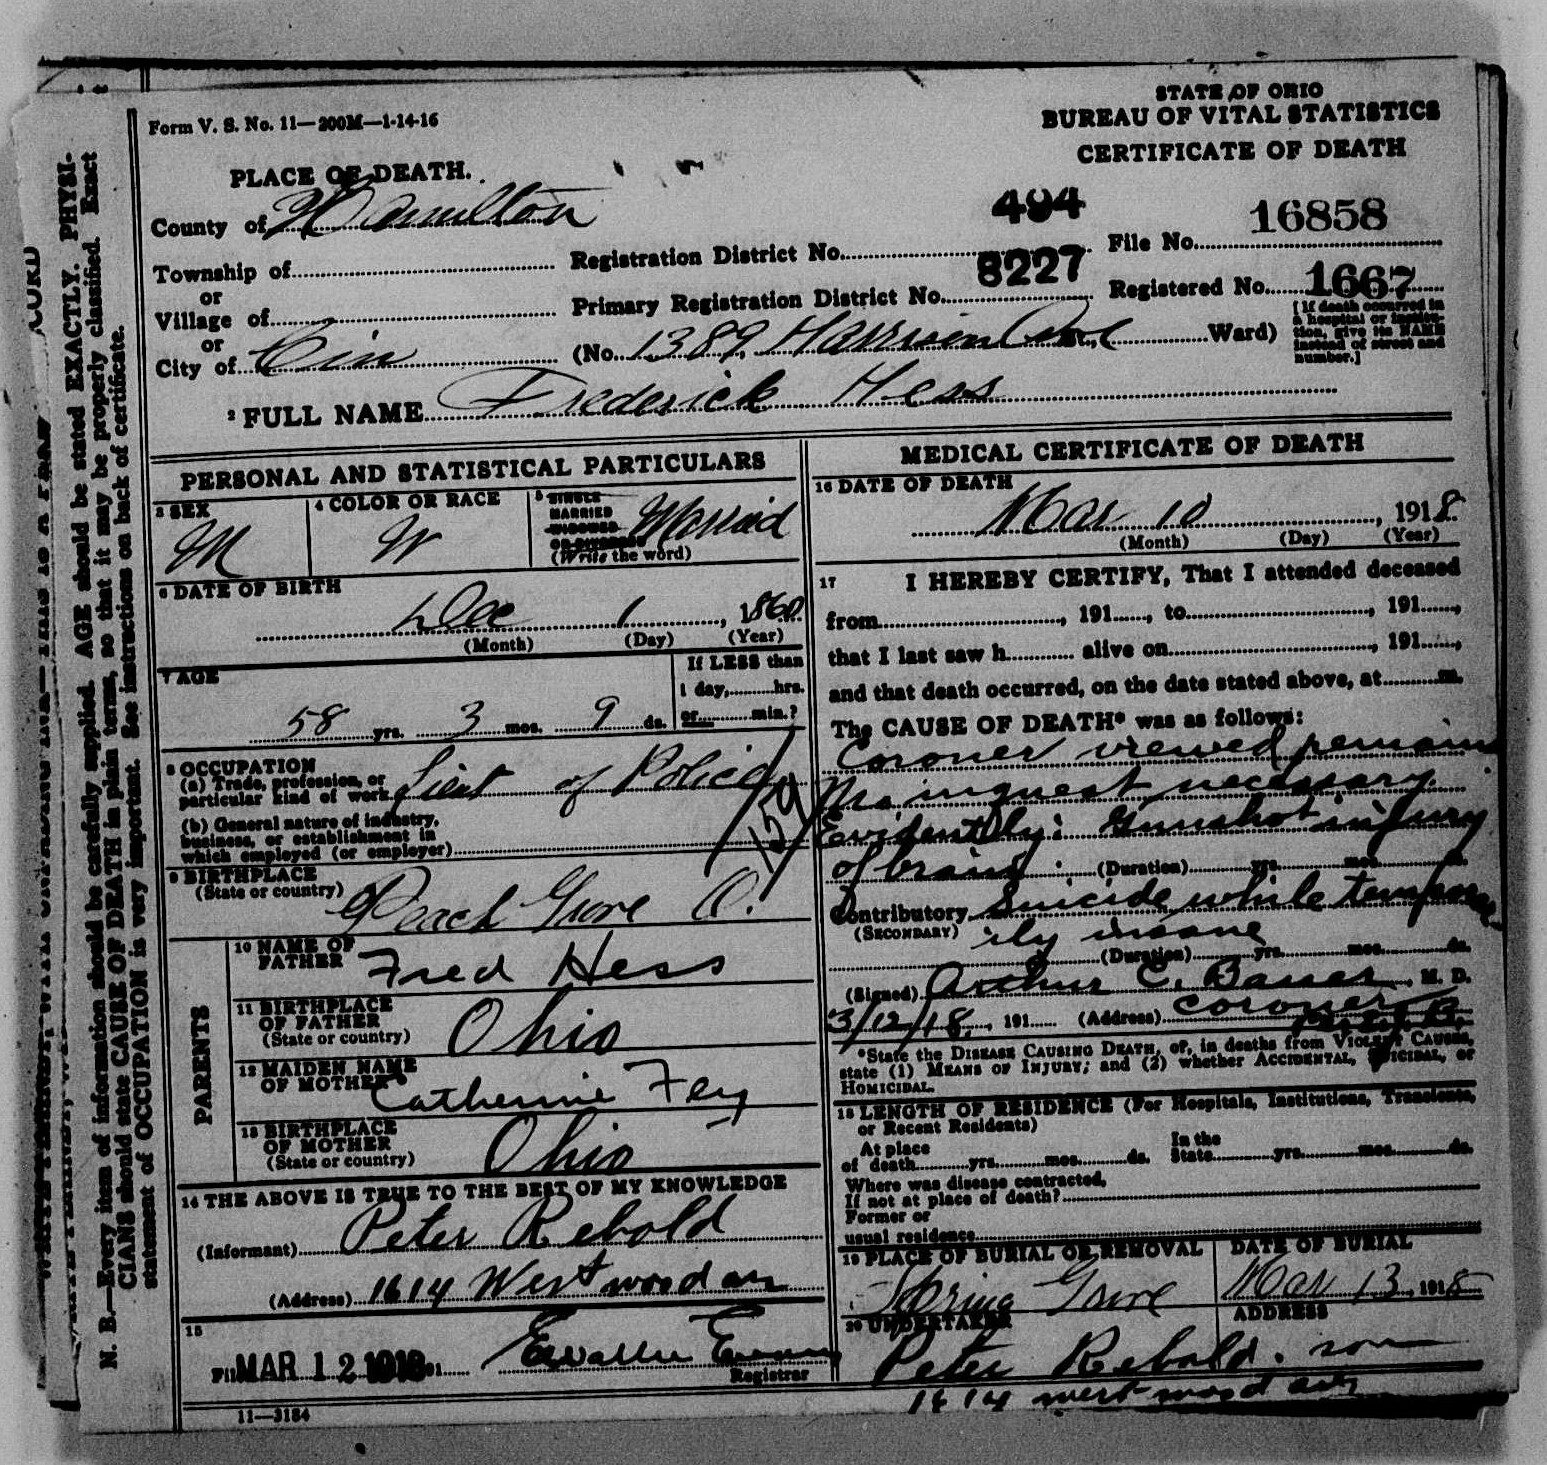 STATE OF OHIO
BUREAU OF VITAL STATISTICS
CERTIFICATE OF DEATH
Form V. S. No. 11—200M—1-14-16
PLACE OF DEATH.
County of Hamilton
Township of
or
Village of
or
City of Cin
Registration District No. 494
File No. 16858
Primary Registration District No. 8227
Registered No. 1667
(No. 1389 Harrison Ave Ward)
[If death occurred in a hospital or institution, give its NAME instead of street and number.]
2 FULL NAME Frederick Hess
PERSONAL AND STATISTICAL PARTICULARS
3 SEX
M
4 COLOR OR RACE
W
5 SINGLE
MARRIED
WIDOWED
OR DIVORCED
(Write the word)
Married
6 DATE OF BIRTH
Dec 1, 1860
(Month) (Day) (Year)
7 AGE
58 yrs. 3 mos. 9 ds.
If LESS than
1 day, hrs.
or min.?
8 OCCUPATION
(a) Trade, profession, or
particular kind of work Lieut of Police
(b) General nature of industry,
business, or establishment in
which employed (or employer)
9 BIRTHPLACE
(State or country)
Peach Grove O.
PARENTS
10 NAME OF
FATHER Fred Hess
11 BIRTHPLACE
OF FATHER
(State or country) Ohio
12 MAIDEN NAME
OF MOTHER Catherine Fey
13 BIRTHPLACE
OF MOTHER
(State or country) Ohio
14 THE ABOVE IS TRUE TO THE BEST OF MY KNOWLEDGE
(Informant) Peter Rebold
(Address) 1614 Westwood av
15
MAR 12 1918 191
Registrar
11—3184
MEDICAL CERTIFICATE OF DEATH
16 DATE OF DEATH
Mar 10, 1918
(Month) (Day) (Year)
17 I HEREBY CERTIFY, That I attended deceased
from , 191 , to , 191 ,
that I last saw h alive on , 191 ,
and that death occurred, on the date stated above, at m.
The CAUSE OF DEATH* was as follows:
Coroner viewed remains
No inquest necessary
Evidently: Gunshot injury
of brain (Duration) yrs. mos. ds.
Contributory Suicide while tempora
(SECONDARY) rily insane
(Duration) yrs. mos. ds.
(Signed) Arthur C. Bauer, M. D.
3/12/18, 191 (Address) coroner
*State the DISEASE CAUSING DEATH, or, in deaths from VIOLENT CAUSES,
state (1) MEANS OF INJURY; and (2) whether ACCIDENTAL, SUICIDAL, or
HOMICIDAL.
18 LENGTH OF RESIDENCE (For Hospitals, Institutions, Transients,
or Recent Residents)
At place
of death yrs. mos. ds.
In the
State yrs. mos. ds.
Where was disease contracted,
If not at place of death?
Former or
usual residence
19 PLACE OF BURIAL OR REMOVAL
Spring Grove
DATE OF BURIAL
Mar 13, 1918
20 UNDERTAKER
ADDRESS
Peter Rebold. son
1614 westwood av
N. B.—Every item of information should be carefully supplied. AGE should be stated EXACTLY. PHYSI-
CIANS should state CAUSE OF DEATH in plain terms, so that it may be properly classified. Exact
statement of OCCUPATION is very important. See instructions on back of certificate.